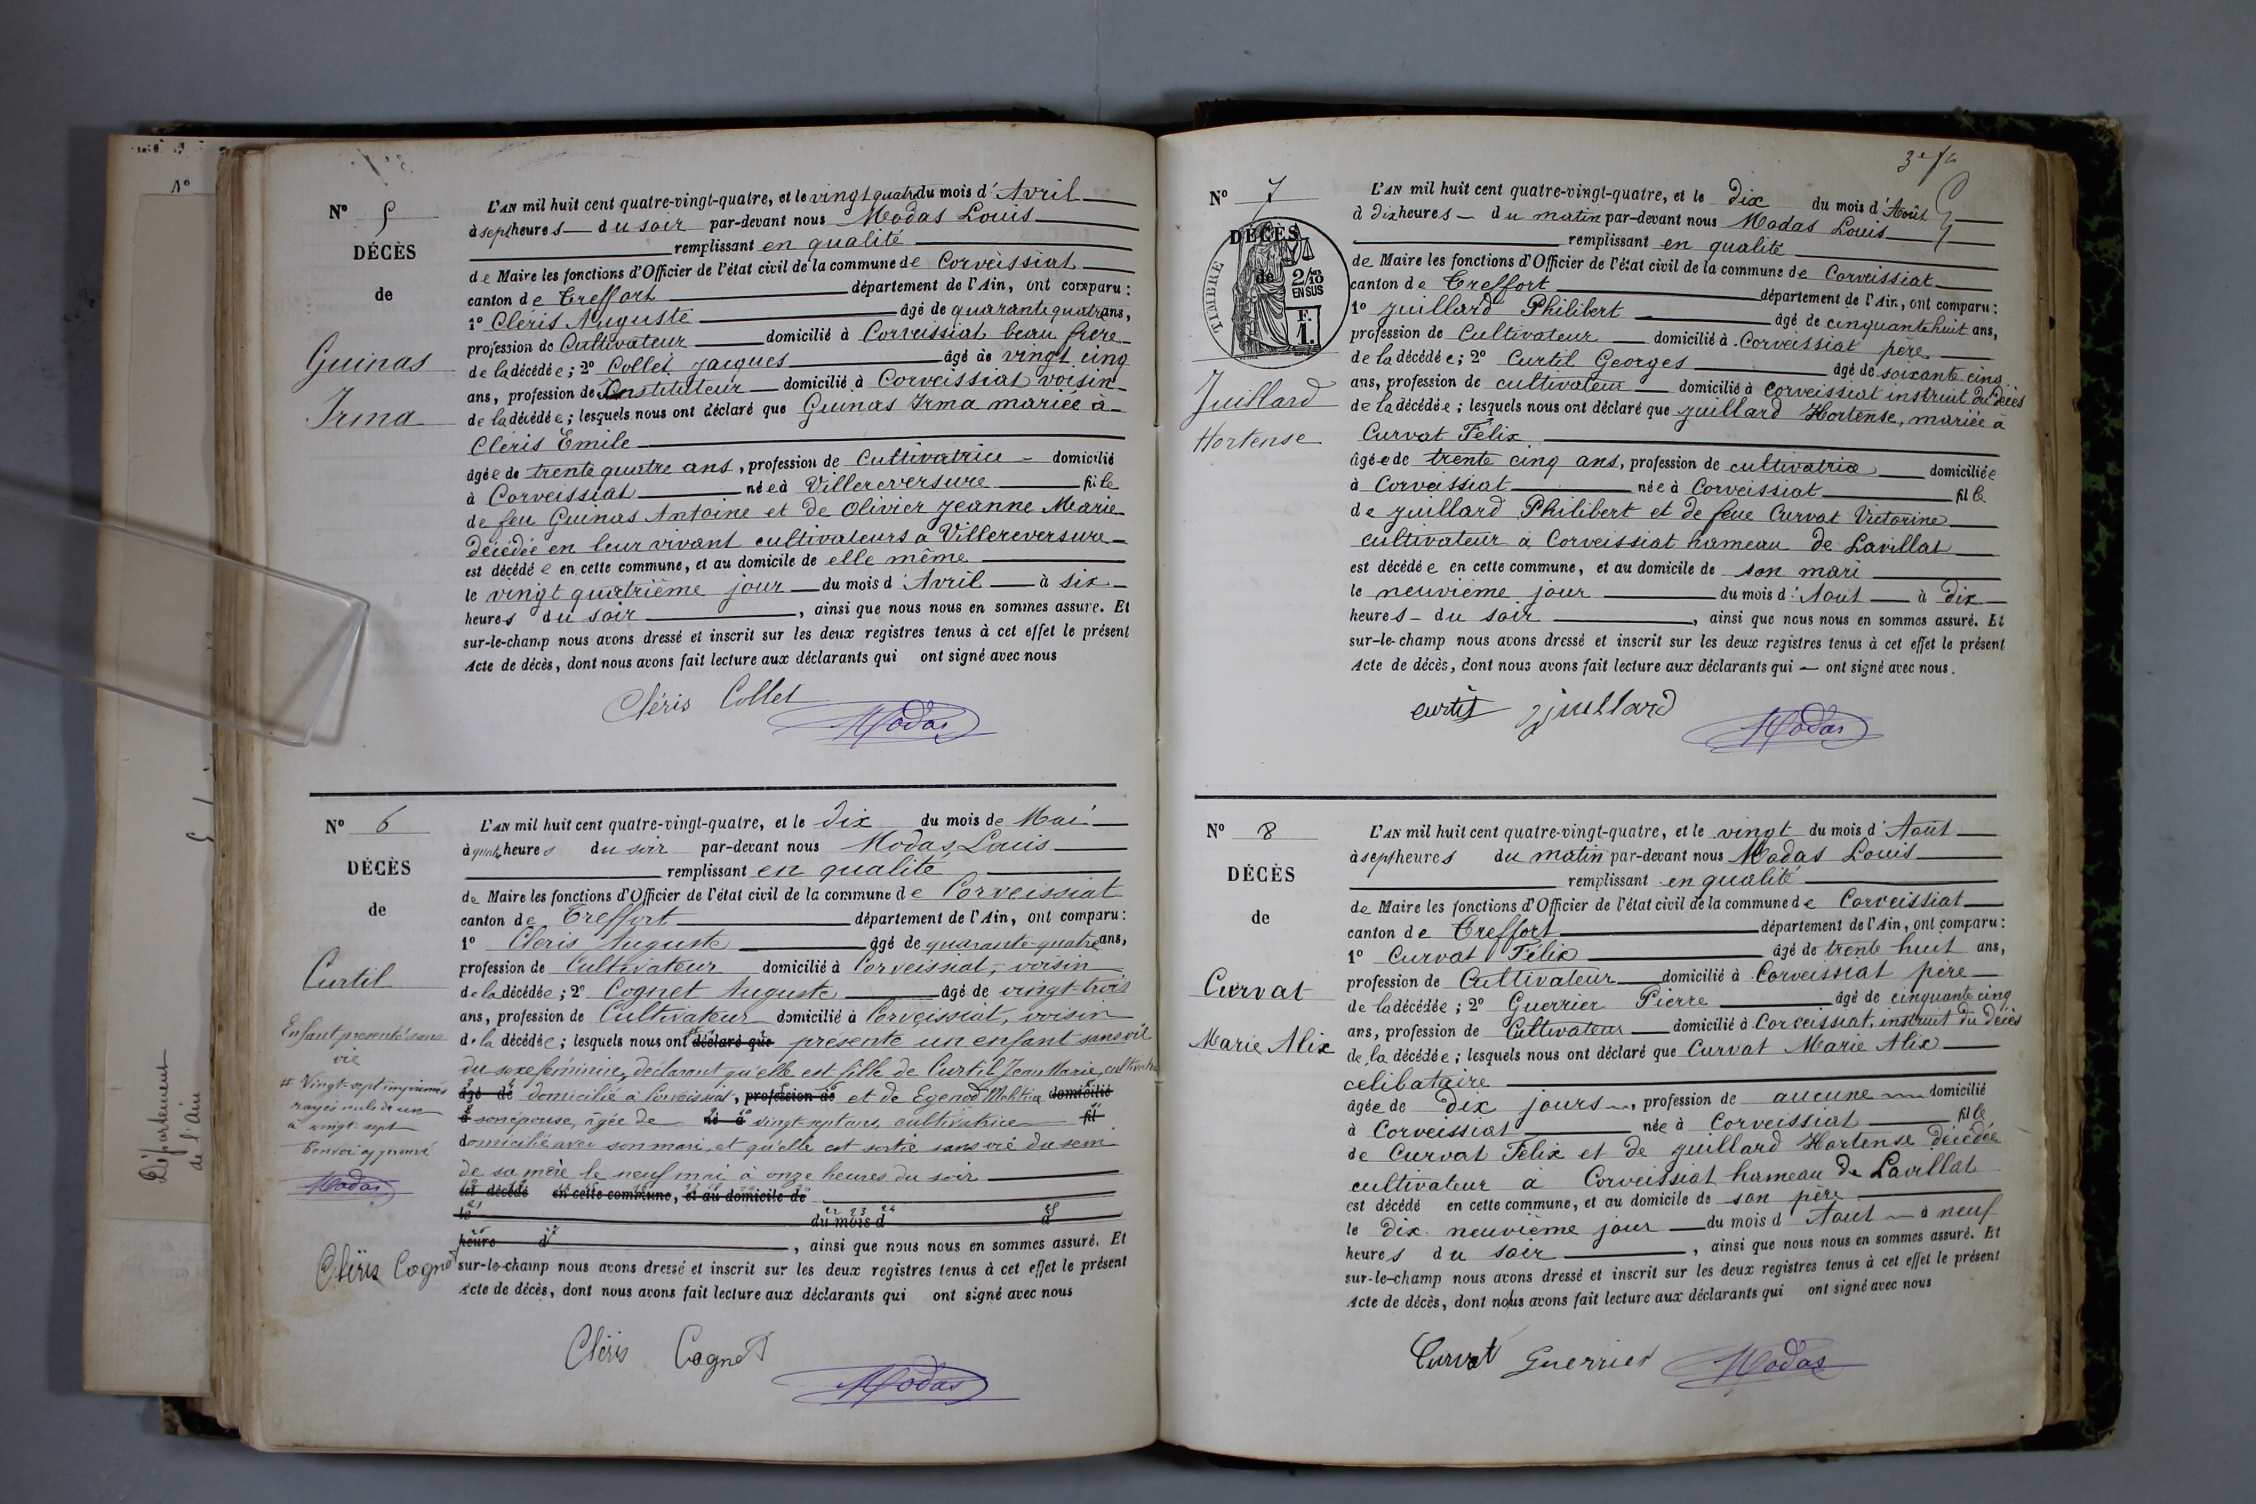 Nº 5
DÉCÈS
de
Guinas
Irma
L'AN mil huit cent quatre-vingt-quatre, et le vingt quatre du mois d'Avril
à sept heures du soir par-devant nous Modas Louis
remplissant en qualité
de Maire les fonctions d'Officier de l'état civil de la commune de Corveissiat
canton de Treffort département de l'Ain, ont comparu :
1º Cléris Auguste âgé de quarante quatre ans,
profession de Cultivateur domicilié à Corveissiat beau frère
de la décédée ; 2º Collet Jacques âgé de vingt cinq
ans, profession de Instituteur domicilié à Corveissiat voisin
de la décédée ; lesquels nous ont déclaré que Guinas Irma mariée à
Cléris Emile
âgée de trente quatre ans, profession de Cultivatrice domicilié
à Corveissiat née à Villereversure fille
de feu Guinas Antoine et de Olivier Jeanne Marie
décédée en leur vivant cultivateurs a Villereversure
est décédée en cette commune, et au domicile de elle même
le vingt quatrième jour du mois d'Avril à six
heures du soir, ainsi que nous nous en sommes assuré. Et
sur-le-champ nous avons dressé et inscrit sur les deux registres tenus à cet effet le présent
Acte de décès, dont nous avons fait lecture aux déclarants qui ont signé avec nous
Cléris Collet
Modas
Nº 6
DÉCÈS
de
Curtil
Enfant presenté sans
vie
Vingt-sept imprimés
rayés nuls de un
à vingt sept
Renvoi approuvé
Modas
Cléris Cognet
L'AN mil huit cent quatre-vingt-quatre, et le dix du mois de Mai
à quatre heures du soir par-devant nous Modas Louis
remplissant en qualité
de Maire les fonctions d'Officier de l'état civil de la commune de Corveissiat
canton de Treffort département de l'Ain, ont comparu :
1º Cleris Auguste âgé de quarante-quatre ans,
profession de Cultivateur domicilié à Corveissiat, voisin
de la décédée ; 2º Cognet Auguste âgé de vingt-trois
ans, profession de Cultivateur domicilié à Corveissiat, voisin
de la décédée ; lesquels nous ont déclaré que presente un enfant sans vie
du sexe féminin, déclarant qu'elle est fille de Curtil Jean Marie, cultivateur
âgé de domicilié à Corveissiat, profession de et de Egenod domicilié
à son épouse, âgée de né à vingt-sept ans, cultivatrice fil
domiciliée avec son mari, et qu'elle est sortie sans vie du sein
de sa mère le neuf mai à onze heures du soir
est décédé en cette commune, et au domicile de
le du mois d à
heure d, ainsi que nous nous en sommes assuré. Et
sur-le-champ nous avons dressé et inscrit sur les deux registres tenus à cet effet le présent
Acte de décès, dont nous avons fait lecture aux déclarants qui ont signé avec nous
Cléris Cognet
Modas
Département
de l'Ain
Nº 7
DÉCÈS
de
TIMBRE
2/10 EN SUS
F. 1.
Juillard
Hortense
L'AN mil huit cent quatre-vingt-quatre, et le dix du mois d'Août
à dix heures du matin par-devant nous Modas Louis
remplissant en qualité
de Maire les fonctions d'Officier de l'état civil de la commune de Corveissiat
canton de Treffort département de l'Ain, ont comparu :
1º Juillard Philibert âgé de cinquante huit ans,
profession de Cultivateur domicilié à Corveissiat père
de la décédée ; 2º Curtil Georges âgé de soixante cinq
ans, profession de cultivateur domicilié à Corveissiat instruit du décès
de la décédée ; lesquels nous ont déclaré que Juillard Hortense, mariée à
Curvat Félix
âgée de trente cinq ans, profession de cultivatrice domiciliée
à Corveissiat née à Corveissiat fille
de Juillard Philibert et de feue Curvat Victorine
cultivateur à Corveissiat hameau de Lavillat
est décédée en cette commune, et au domicile de son mari
le neuvième jour du mois d'Aout à dix
heures du soir, ainsi que nous nous en sommes assuré. Et
sur-le-champ nous avons dressé et inscrit sur les deux registres tenus à cet effet le présent
Acte de décès, dont nous avons fait lecture aux déclarants qui ont signé avec nous.
curtil juillard
Modas
Nº 8
DÉCÈS
de
Curvat
Marie Alix
L'AN mil huit cent quatre-vingt-quatre, et le vingt du mois d'Août
à sept heures du matin par-devant nous Modas Louis
remplissant en qualité
de Maire les fonctions d'Officier de l'état civil de la commune de Corveissiat
canton de Treffort département de l'Ain, ont comparu :
1º Curvat Félix âgé de trente huit ans,
profession de Cultivateur domicilié à Corveissiat père
de la décédée ; 2º Guerrier Pierre âgé de cinquante cinq
ans, profession de Cultivateur domicilié à Corveissiat, instruit du décès
de la décédée ; lesquels nous ont déclaré que Curvat Marie Alix
celibataire
âgée de dix jours, profession de aucune domicilié
à Corveissiat née à Corveissiat fille
de Curvat Félix et de Juillard Hortense décédée
cultivateur à Corveissiat hameau de Lavillat
est décédé en cette commune, et au domicile de son père
le dix neuvième jour du mois d Aout à neuf
heures du soir, ainsi que nous nous en sommes assuré. Et
sur-le-champ nous avons dressé et inscrit sur les deux registres tenus à cet effet le présent
Acte de décès, dont nous avons fait lecture aux déclarants qui ont signé avec nous
Curvat Guerrier Modas